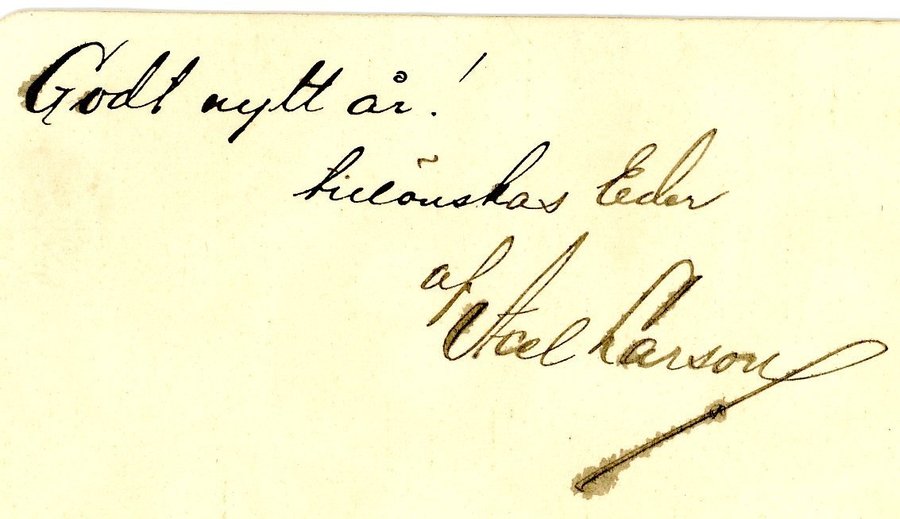 Godt nytt år!
tillönskas Eder
af
Axel Larson